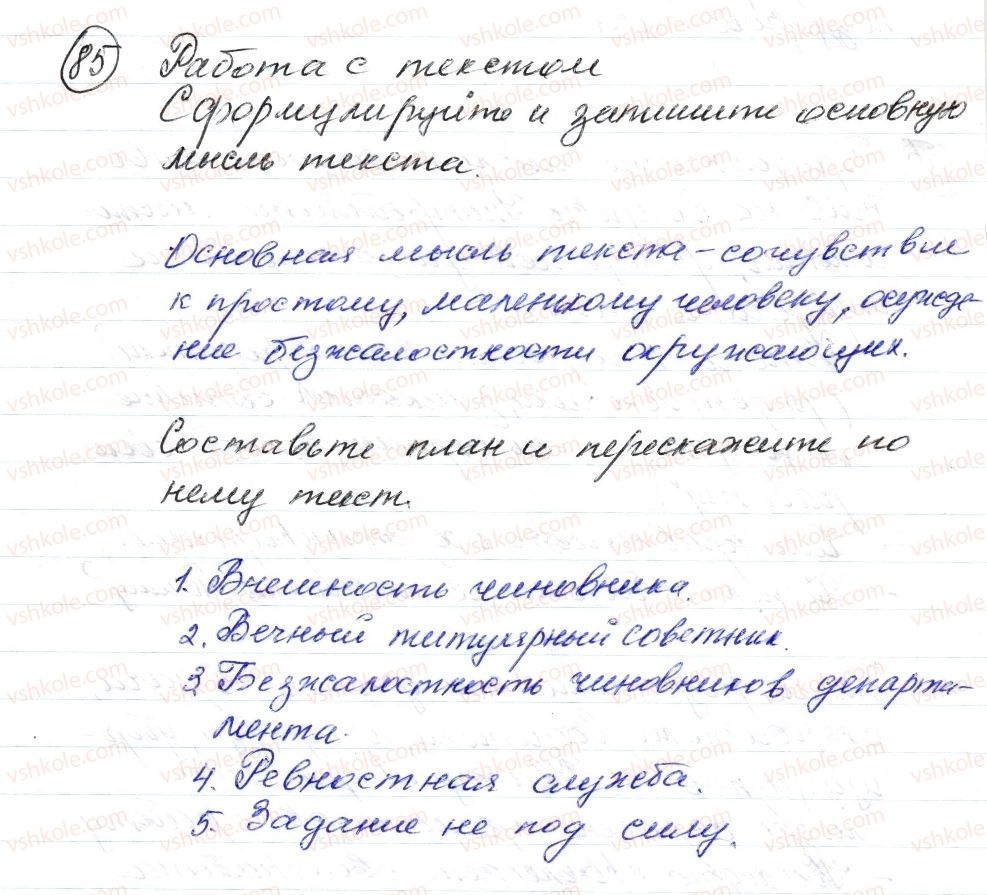 85 Работа с текстом
Сформулируйте и запишите основную
мысль текста.
Основная мысль текста – сочувствие
к простому, маленькому человеку, осужде-
ние безжалостности окружающих.
Составьте план и перескажите по
нему текст.
1. Внешность чиновника.
2. Вечный титулярный советник.
3 Безжалостность чиновников департа-
мента.
4. Ревностная служба.
5. Задание не под силу.
vshkole.com